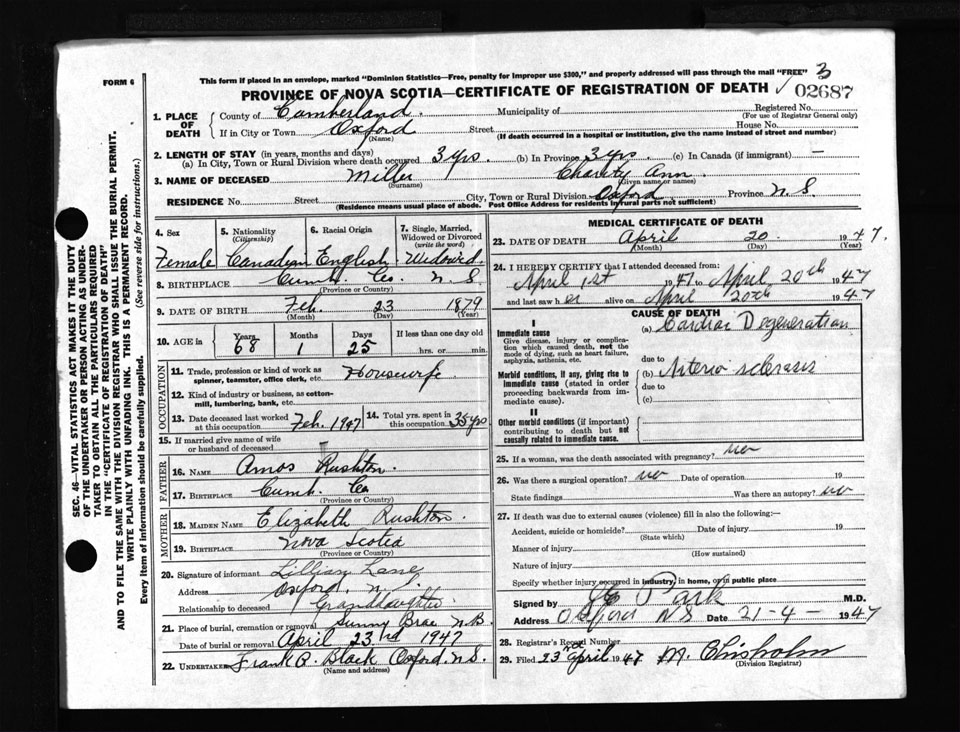 FORM 6
This form if placed in an envelope, marked "Dominion Statistics—Free, penalty for improper use $300," and properly addressed will pass through the mail "FREE" 3
PROVINCE OF NOVA SCOTIA—CERTIFICATE OF REGISTRATION OF DEATH ✓ 02687
1. PLACE OF DEATH
County of Cumberland. Municipality of Registered No.
(For use of Registrar General only)
If in City or Town Oxford Street House No.
(Name) (If death occurred in a hospital or institution, give the name instead of street and number)
2. LENGTH OF STAY (in years, months and days)
(a) In City, Town or Rural Division where death occurred 3 yrs. (b) In Province 3 yrs. (c) In Canada (if immigrant) —
3. NAME OF DECEASED Miller Charity Ann
(Surname) (Given name or names)
RESIDENCE No. Street City, Town or Rural Division Oxford Province N.S.
(Residence means usual place of abode. Post Office Address for residents in rural parts not sufficient)
4. Sex Female
5. Nationality (Citizenship) Canadian
6. Racial Origin English
7. Single, Married, Widowed or Divorced (write the word) Widowed.
8. BIRTHPLACE Cumb. Co. N.S.
(Province or Country)
9. DATE OF BIRTH Feb. 23 1879
(Month) (Day) (Year)
10. AGE in Years 68 Months 1 Days 25 If less than one day old hrs. or min.
OCCUPATION
11. Trade, profession or kind of work as spinner, teamster, office clerk, etc. Housewife
12. Kind of industry or business, as cotton-mill, lumbering, bank, etc.
13. Date deceased last worked at this occupation Feb. 1947
14. Total yrs. spent in this occupation 35 yrs
15. If married give name of wife or husband of deceased
FATHER
16. NAME Amos Rushton.
17. BIRTHPLACE Cumb. Co
(Province or Country)
MOTHER
18. MAIDEN NAME Elizabeth Rushton.
19. BIRTHPLACE Nova Scotia
(Province or Country)
20. Signature of informant Lillian Lane
Address Oxford, N.S.
Relationship to deceased Granddaughter
21. Place of burial, cremation or removal Sunny Brae N.B.
Date of burial or removal April 23rd 1947
22. UNDERTAKER Frank R. Black Oxford, N.S.
MEDICAL CERTIFICATE OF DEATH
23. DATE OF DEATH April 20 1947.
(Month) (Day) (Year)
24. I HEREBY CERTIFY that I attended deceased from:
April 1st 1947 to April 20th 1947
and last saw her alive on April 20th 1947
CAUSE OF DEATH
I
Immediate cause
Give disease, injury or complication which caused death, not the mode of dying, such as heart failure, asphyxia, asthenia, etc.
(a) Cardiac Degeneration
due to
Morbid conditions, if any, giving rise to immediate cause (stated in order proceeding backwards from immediate cause).
(b) Arterio sclerosis
due to
(c)
II
Other morbid conditions (if important) contributing to death but not causally related to immediate cause.
25. If a woman, was the death associated with pregnancy? no
26. Was there a surgical operation? no Date of operation 19
State findings Was there an autopsy? no
27. If death was due to external causes (violence) fill in also the following:—
Accident, suicide or homicide? Date of injury 19
(State which)
Manner of injury
(How sustained)
Nature of injury
Specify whether injury occurred in industry, in home, or in public place
Signed by Park M.D.
Address Oxford N S Date 21-4- 1947
28. Registrar's Record Number
29. Filed 23rd April 1947 M. Chisholm
(Division Registrar)
SEC. 46—VITAL STATISTICS ACT MAKES IT THE DUTY
OF THE UNDERTAKER OR PERSON ACTING AS UNDERTAKER
TO OBTAIN ALL THE PARTICULARS REQUIRED
IN THE "CERTIFICATE OF REGISTRATION OF DEATH"
AND TO FILE THE SAME WITH THE DIVISION REGISTRAR WHO SHALL ISSUE THE BURIAL PERMIT.
WRITE PLAINLY WITH UNFADING INK. THIS IS A PERMANENT RECORD.
Every item of information should be carefully supplied. (See reverse side for instructions.)